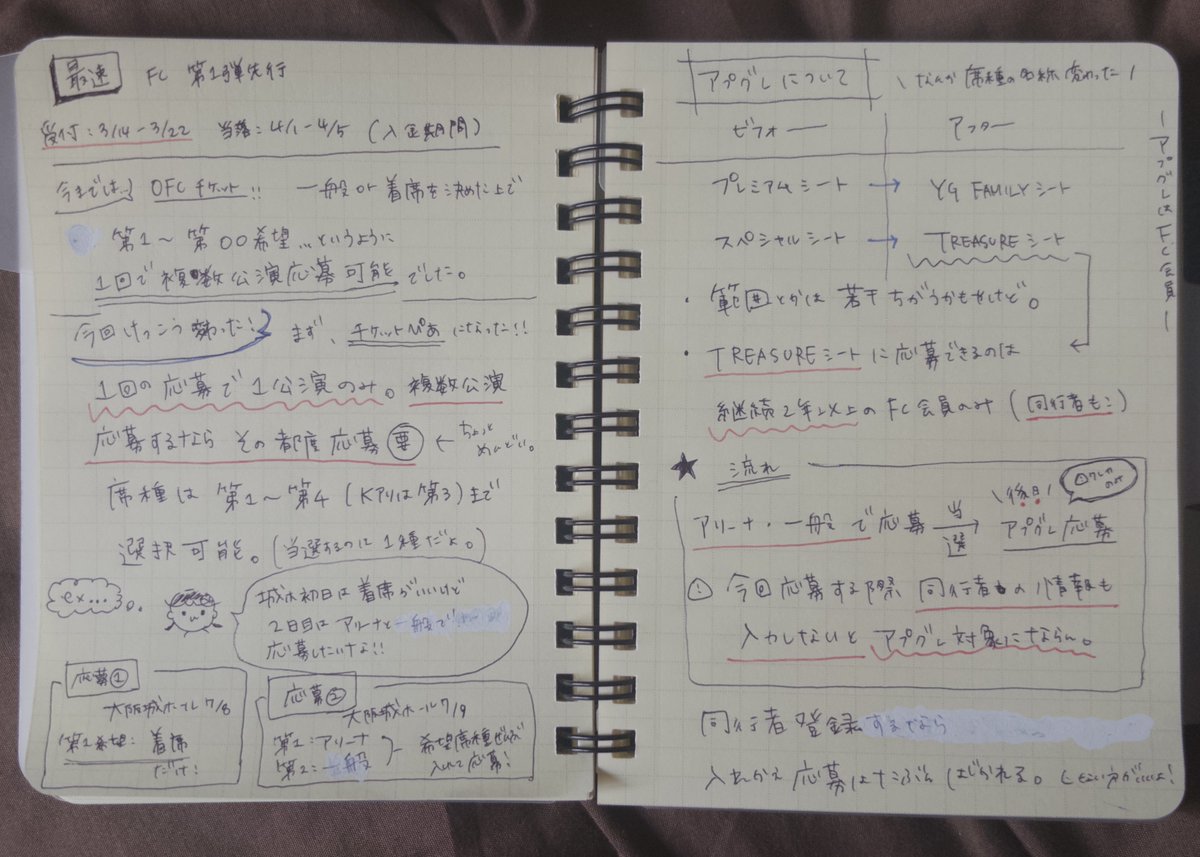 最速 FC 第1弾先行
受付:3/14-3/22 当落:4/1-4/5 (入金期間)
今までは… OFCチケット!! 一般or着席を決めた上で
第1〜第〇〇希望…というように
1回で複数公演応募可能でした。
今回けっこう変わった! まず、チケットぴあになった!!
1回の応募で1公演のみ。複数公演
応募するなら その都度応募 要 ← ちょっと
めんどい。
席種は 第1〜第4 (Kアリは第3)まで
選択可能。(当選するのは1種だよ。)
ex...
城ホ初日は着席がいいけど
2日目はアリーナと一般で
応募したいな!!
応募①
大阪城ホール7/8
第1希望:着席
だけ!
応募②
大阪城ホール7/9
第1:アリーナ
第2:一般
希望席種ぜんぶ
入れて応募!
アプグレについて \なんか席種の名称変わった/
ビフォー アフター
プレミアムシート → YG FAMILYシート
スペシャルシート → TREASUREシート
・範囲とかは若干ちがうかもだけど。
・TREASUREシートに応募できるのは
継続2年以上のFC会員のみ (同行者も!)
ーアプグレはFC会員ー
★ 流れ
\後日/
アリーナ・一般で応募 当選→ アプグレ応募
! 今回応募する際 同行者の情報も
入力しないと アプグレ対象にならん。
同行者登録するなら
入れかえ応募はたぶん はじかれる。